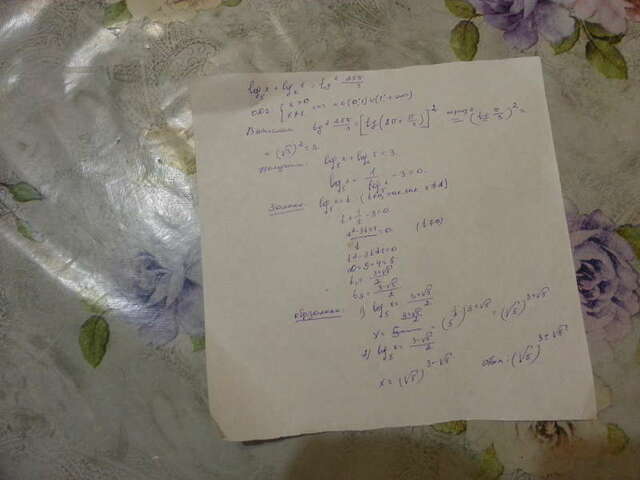 log₅x + logₓ5 = tg² 25π/3
ОДЗ: { x>0 x≠1 x∈(0;1)∪(1;+∞)
tg² 25π/3 = [tg(8π + π/3)]² = (tg π/3)² =
= (√3)² = 3.
Получим: log₅x + logₓ5 = 3
log₅x + 1/log₅x − 3 = 0.
Замена: log₅x = t
t + 1/t − 3 = 0
(t² − 3t + 1)/t = 0. (t≠0)
t² − 3t + 1 = 0
D = 9 − 4 = 5
t₁ = (3+√5)/2
t₂ = (3−√5)/2
1) log₅x = (3+√5)/2
x = = (5^(1/2))^(3+√5) = (√5)^(3+√5)
2) log₅x = (3−√5)/2
x = (√5)^(3−√5) Ответ: (√5)^(3±√5)